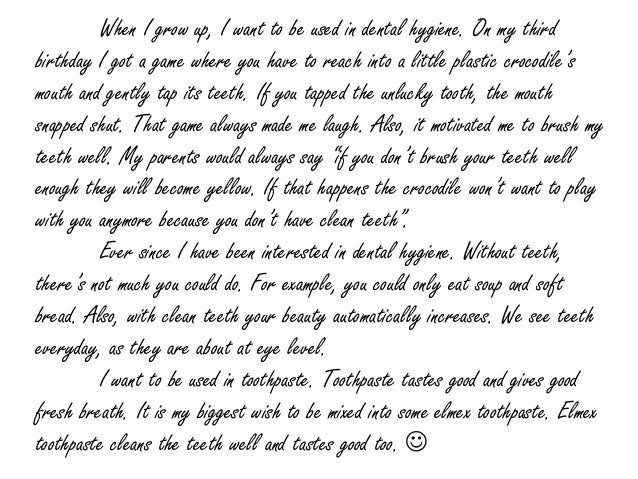 When I grow up, I want to be used in dental hygiene. On my third
birthday I got a game where you have to reach into a little plastic crocodile's
mouth and gently tap its teeth. If you tapped the unlucky tooth, the mouth
snapped shut. That game always made me laugh. Also, it motivated me to brush my
teeth well. My parents would always say "if you don't brush your teeth well
enough they will become yellow. If that happens the crocodile won't want to play
with you anymore because you don't have clean teeth".
Ever since I have been interested in dental hygiene. Without teeth,
there's not much you could do. For example, you could only eat soup and soft
bread. Also, with clean teeth your beauty automatically increases. We see teeth
everyday, as they are about at eye level.
I want to be used in toothpaste. Toothpaste tastes good and gives good
fresh breath. It is my biggest wish to be mixed into some elmex toothpaste. Elmex
toothpaste cleans the teeth well and tastes good too. ☺